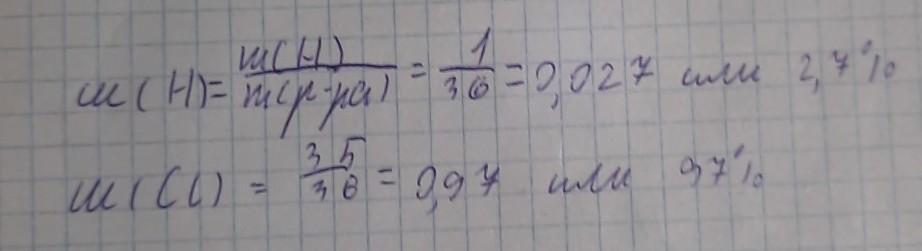 ω(H) = m(H)/m(р-ра) = 1/36 = 0,027 или 2,7%
ω(Cl) = 35/36 = 0,97 или 97%